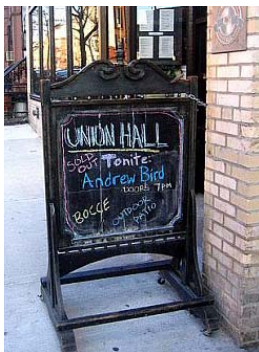 UNION HALL
SOLD OUT Tonite:
Andrew Bird
DOORS 7PM
BOCCE
OUTDOOR
PATIO